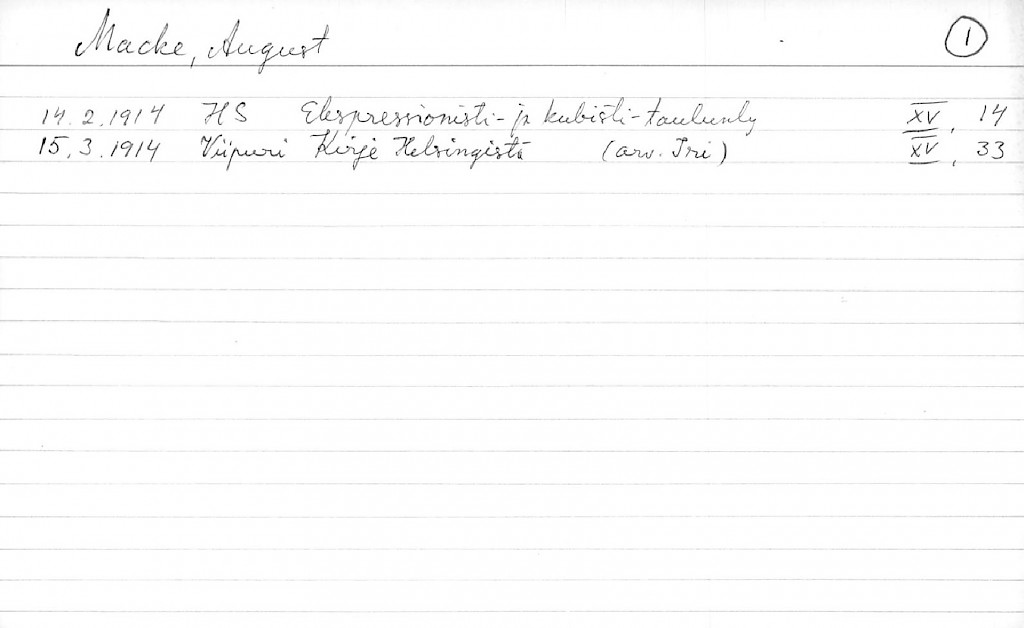 Macke, August 1
14.2.1914 HS Ekspressionisti- ja kubisti-taulunly XV, 14
15.3.1914 Viipuri Kirje Helsingistä (arv. Iri) XV, 33